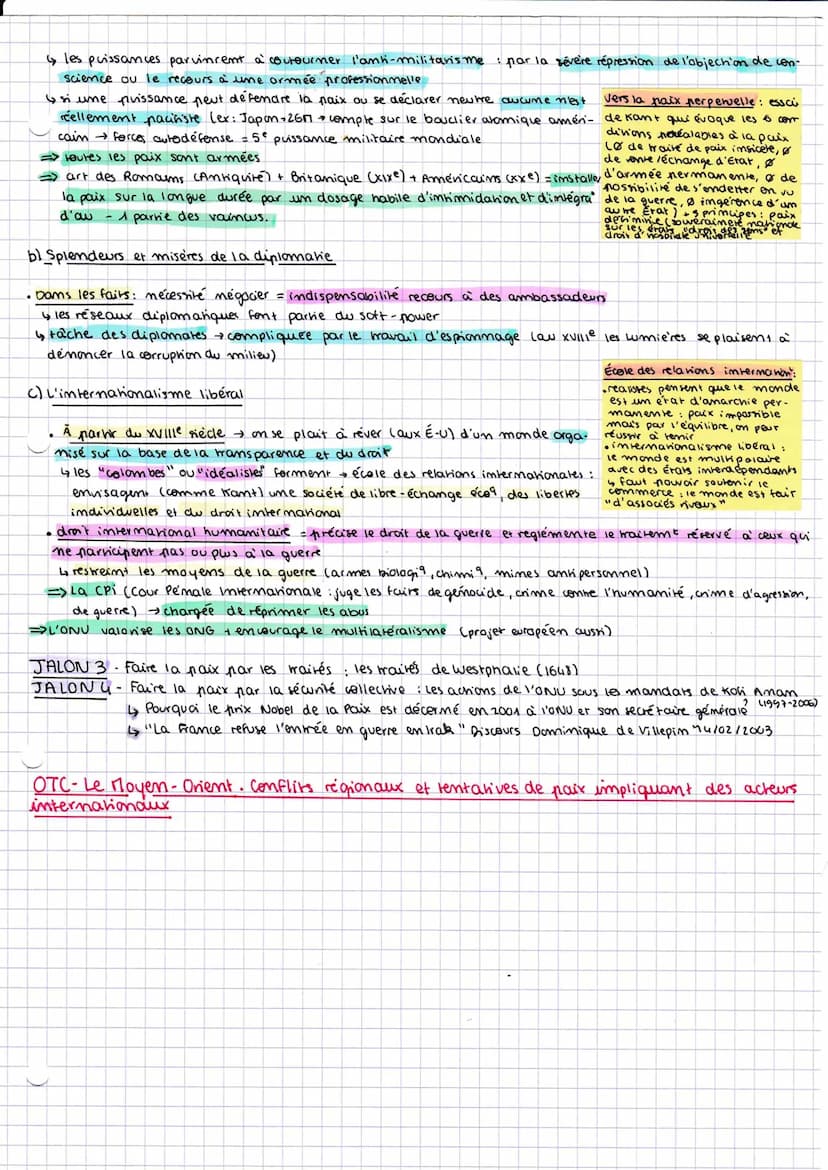 ↳ les puissances parvinrent à contourner l'anti-militarisme : par la sévère répression de l'objection de con-
science ou le recours à une armée professionnelle
↳ si une puissance peut défendre la paix ou se déclarer neutre aucune n'est
réellement pacifiste (ex: Japon → compte sur le bouclier atomique améri-
cain → Forces autodéfense = 5e puissance militaire mondiale
⇒ toutes les paix sont armées
⇒ art des Romains (Antiquité) + Britanique (XIXe) + Américains (XXe) = installer
la paix sur la longue durée par un dosage habile d'intimidation et d'intégra°
d'au - 1 partie des vaincus.
Vers la paix perpetuelle : essai
de Kant qui évoque les 6 con
ditions préalables à la paix
(Ø de traité de paix insicète, Ø
de vente/échange d'État, Ø
d'armée permanente, Ø de
possibilité de s'endetter en vu
de la guerre, Ø ingérence d'un
autre État) + 3 principes : paix
définitive (souveraineté nationale
sur les états, "droit des gens" et
droit d'hospitale universelle
b) Splendeurs et misères de la diplomatie
• Dans les faits : nécessité négocier = indispensabilité recours à des ambassadeurs
↳ les réseaux diplomatiques font partie du soft-power
↳ tâche des diplomates → compliquée par le travail d'espionnage (au XVIIIe les lumières se plaisent à
dénoncer la corruption du milieu)
c) L'internationalisme libéral
• À partir du XVIIIe siècle → on se plait à rêver (aux É-U) d'un monde orga-
nisé sur la base de la transparence et du droit
↳ les "colombes" ou "idéalistes" forment → école des relations internationales :
envisagent (comme Kant) une société de libre-échange écoq, des libertés
individuelles et du droit international
École des relations internation :
• réalistes pensent que le monde
est un état d'anarchie per-
manente : paix impossible
mais par l'équilibre, on peut
réussir à tenir
• internationalisme libéral :
le monde est multipolaire
avec des États interdépendants
↳ faut pouvoir soutenir le
commerce : le monde est fait
"d'associés rivaux"
• droit international humanitaire = précise le droit de la guerre et réglemente le traitemt réservé à ceux qui
ne participent pas ou plus à la guerre
↳ restreint les moyens de la guerre (armes biologiq, chimiq, mines antipersonnel)
⇒ La CPI (Cour Pénale Internationale : juge les faits de génocide, crime contre l'humanité, crime d'agression,
de guerre) → chargée de réprimer les abus
⇒ L'ONU valorise les ONG + encourage le multilatéralisme (projet européen aussi)
JALON 3 - Faire la paix par les traités : les traités de Westphalie (1648)
JALON 4 - Faire la paix par la sécurité collective : les actions de l'ONU sous les mandats de Kofi Annan
(1997-2006)
↳ Pourquoi le prix Nobel de la Paix est décerné en 2001 à l'ONU et son secrétaire général ?
↳ "La France refuse l'entrée en guerre en Irak" Discours Dominique de Villepin 14/02/2003
OTC - Le Moyen-Orient. Conflits régionaux et tentatives de paix impliquant des acteurs
internationaux